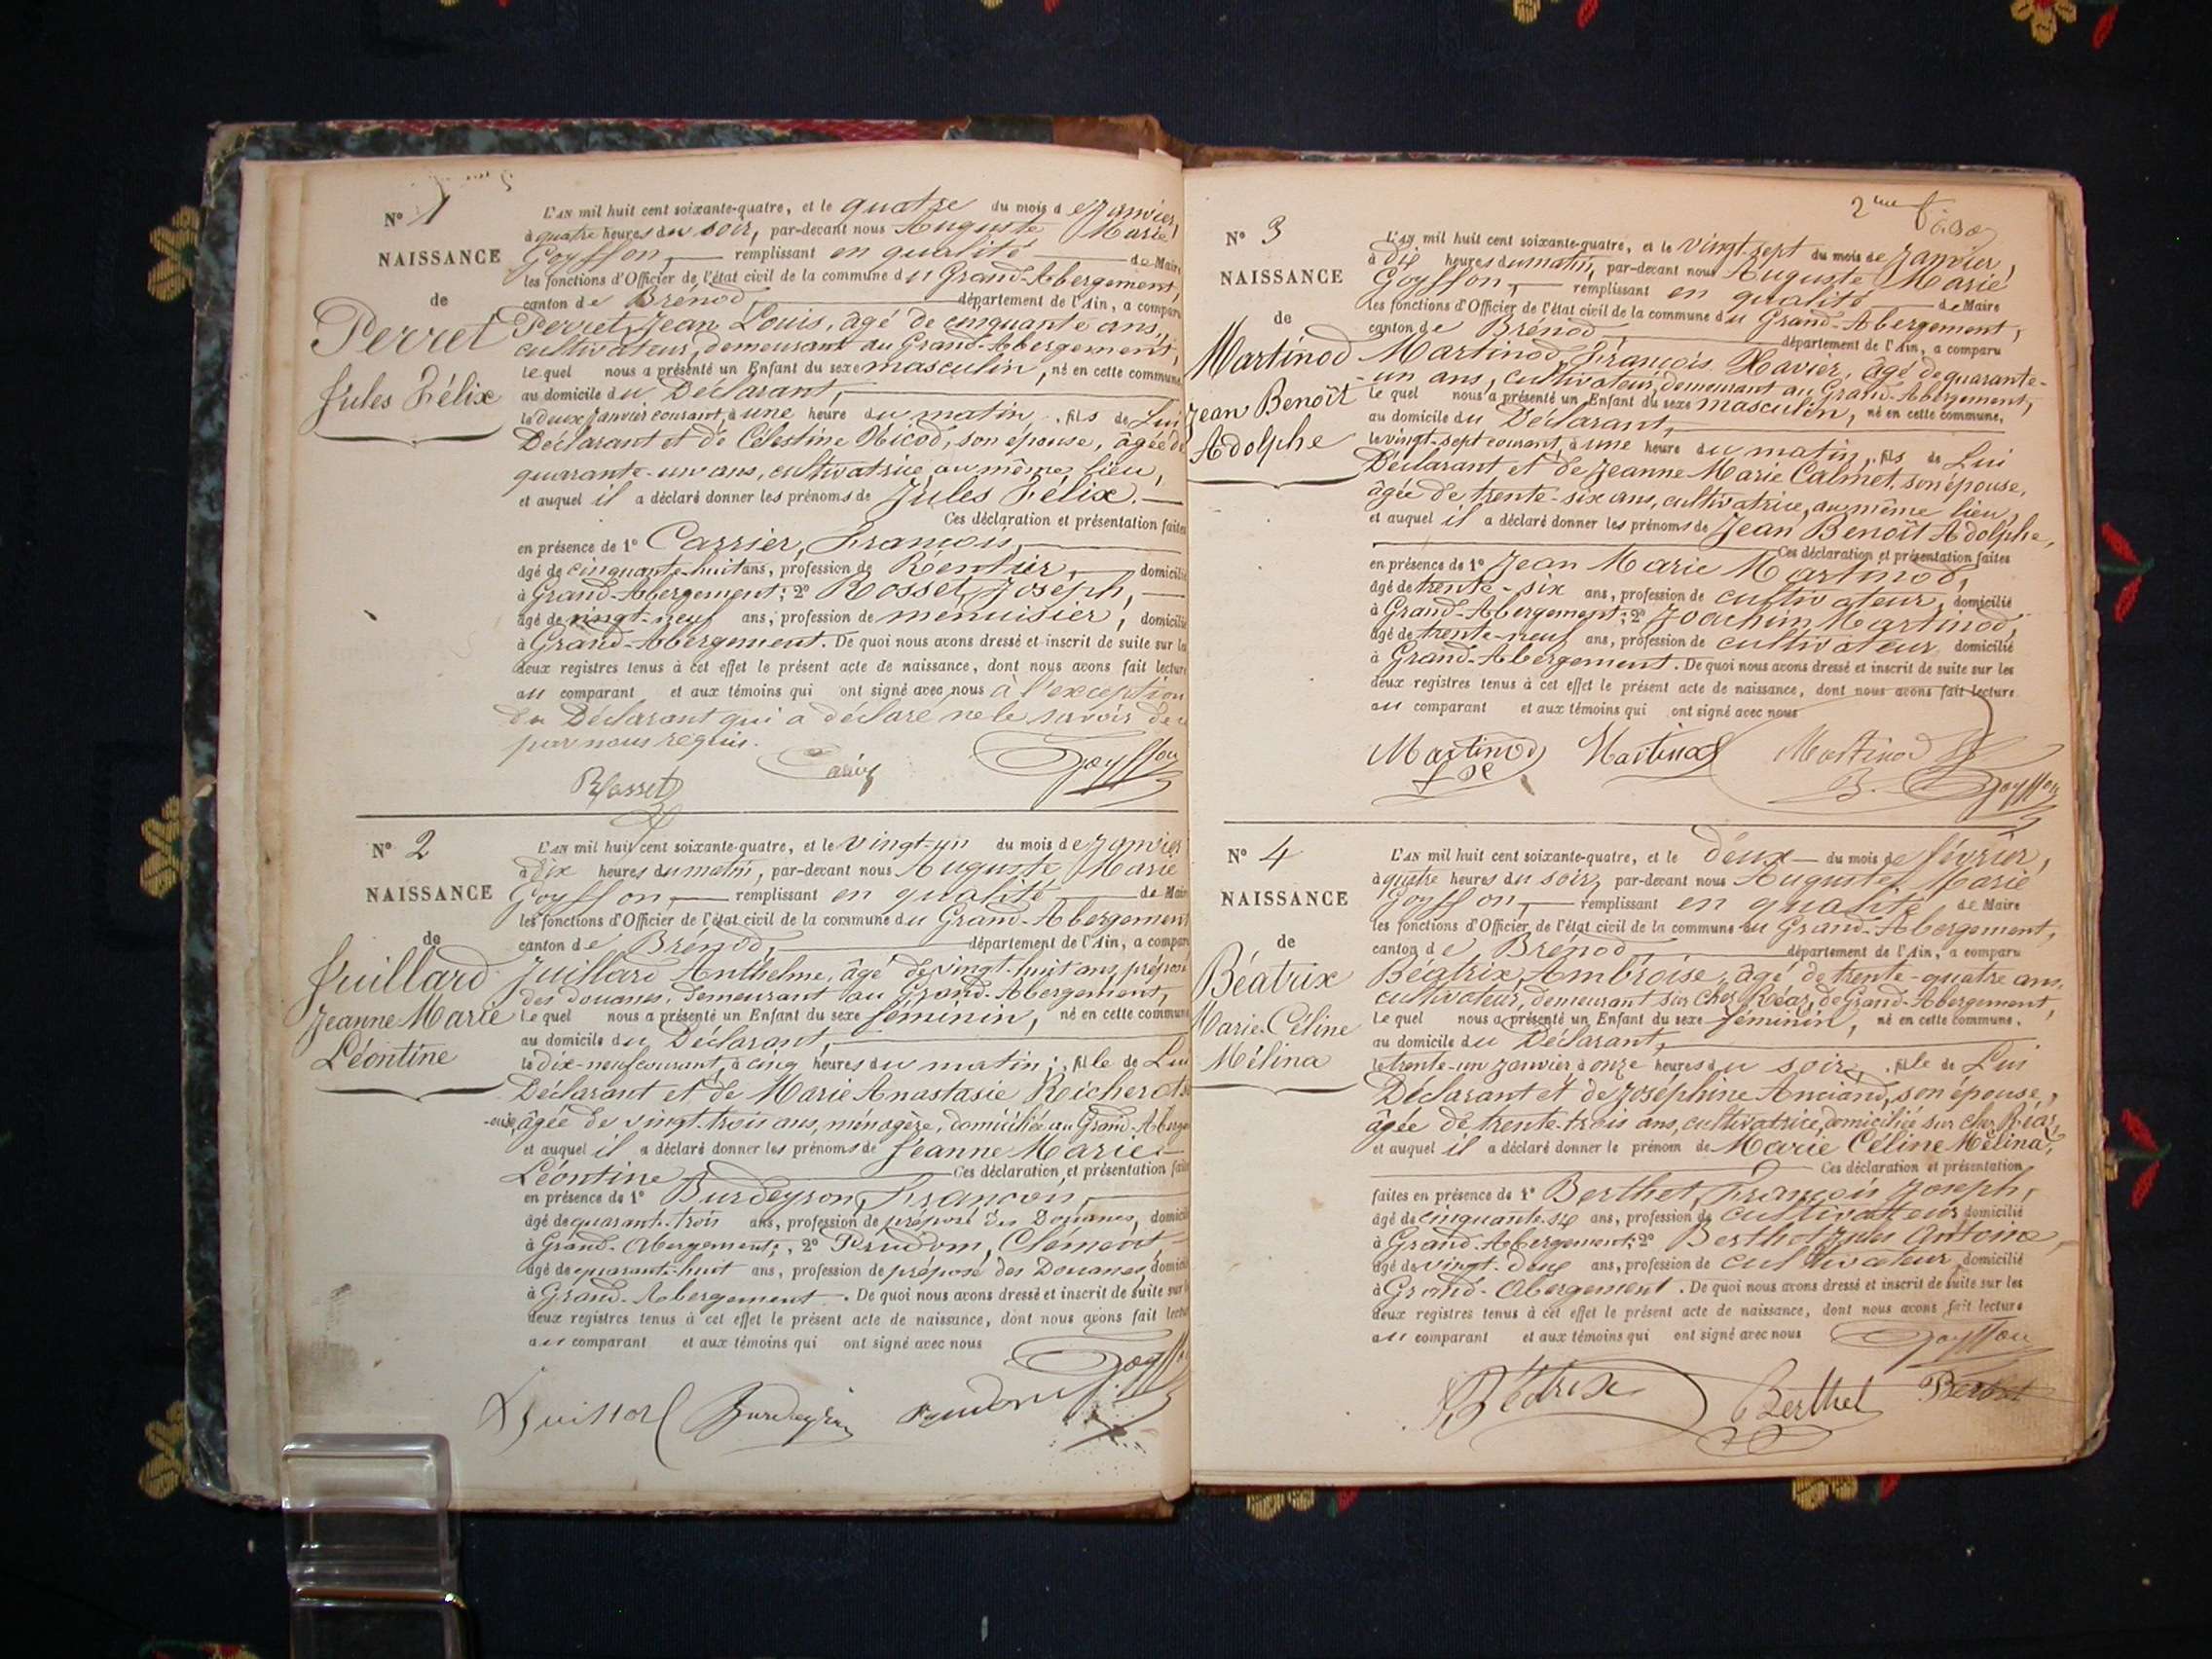 N° 1
NAISSANCE
de
Perret
Jules Félix
L'AN mil huit cent soixante-quatre, et le quatre du mois de Janvier,
à quatre heures du soir, par-devant nous Auguste Marie
Goyffon, remplissant en qualité de Maire
les fonctions d'Officier de l'état civil de la commune du Grand-Abergement,
canton de Brénod, département de l'Ain, a comparu
Perret, Jean Louis, âgé de cinquante ans,
cultivateur, demeurant au Grand-Abergement,
lequel nous a présenté un Enfant du sexe masculin, né en cette commune
au domicile du Déclarant,
le deux Janvier courant, à une heure du matin, fils de Lui
Déclarant et de Célestine Nicod, son épouse, âgée de
quarante-un ans, cultivatrice au même lieu,
et auquel il a déclaré donner les prénoms de Jules Félix.
Ces déclaration et présentation faites
en présence de 1° Carrier, François,
âgé de cinquante-huit ans, profession de Rentier, domicilié
à Grand-Abergement; 2° Rosset, Joseph,
âgé de vingt-neuf ans, profession de menuisier, domicilié
à Grand-Abergement. De quoi nous avons dressé et inscrit de suite sur les
deux registres tenus à cet effet le présent acte de naissance, dont nous avons fait lecture
au comparant et aux témoins qui ont signé avec nous à l'exception
du Déclarant qui a déclaré ne le savoir de ce
par nous requis.
Rosset Goyffon
N° 2
NAISSANCE
de
Juillard
Jeanne Marie
Léontine
L'AN mil huit cent soixante-quatre, et le vingt-un du mois de Janvier
à dix heures du matin, par-devant nous Auguste Marie
Goyffon, remplissant en qualité de Maire
les fonctions d'Officier de l'état civil de la commune du Grand-Abergement
canton de Brénod, département de l'Ain, a comparu
Juillard Anthelme, âgé de vingt-huit ans, préposé
des douanes, demeurant au Grand-Abergement,
Lequel nous a présenté un Enfant du sexe féminin, né en cette commune
au domicile du Déclarant,
le dix-neuf courant, à cinq heures du matin; fille de Lui
Déclarant et de Marie Anastasie Reicher
âgée de vingt-trois ans, ménagère, domiciliée au Grand-Aberge
et auquel il a déclaré donner les prénoms de Jeanne Marie
Léontine Ces déclaration et présentation faites
en présence de 1° Burdeyron, François,
âgé de quarante-trois ans, profession de préposé des Douanes, domicilié
à Grand-Abergement; 2° Prudom, Clément
âgé de quarante-huit ans, profession de préposé des Douanes, domicilié
à Grand-Abergement. De quoi nous avons dressé et inscrit de suite sur les
deux registres tenus à cet effet le présent acte de naissance, dont nous avons fait lecture
au comparant et aux témoins qui ont signé avec nous
Goyffon
Juillard Burdeyron
2me
N° 3
NAISSANCE
de
Martinod
Jean Benoît
Adolphe
L'AN mil huit cent soixante-quatre, et le vingt-sept du mois de Janvier,
à dix heures du matin, par-devant nous Auguste Marie
Goyffon, remplissant en qualité de Maire
les fonctions d'Officier de l'état civil de la commune du Grand-Abergement,
canton de Brénod, département de l'Ain, a comparu
Martinod, François Xavier, âgé de quarante-
-un ans, cultivateur, demeurant au Grand-Abergement,
Lequel nous a présenté un Enfant du sexe masculin, né en cette commune,
au domicile du Déclarant,
le vingt-sept courant, à une heure du matin, fils de Lui
Déclarant et de Jeanne Marie Calmet, son épouse,
âgée de trente-six ans, cultivatrice, au même lieu,
et auquel il a déclaré donner les prénoms de Jean Benoît Adolphe,
Ces déclaration et présentation faites
en présence de 1° Jean Marie Martinod,
âgé de trente-six ans, profession de cultivateur, domicilié
à Grand-Abergement; 2° Joachim Martinod,
âgé de trente-neuf ans, profession de cultivateur domicilié
à Grand-Abergement. De quoi nous avons dressé et inscrit de suite sur les
deux registres tenus à cet effet le présent acte de naissance, dont nous avons fait lecture
au comparant et aux témoins qui ont signé avec nous
Martinod Martinod Martinod
Goyffon
N° 4
NAISSANCE
de
Béatrix
Marie Céline
Mélina
L'AN mil huit cent soixante-quatre, et le deux du mois de février,
à quatre heures du soir, par-devant nous Auguste Marie
Goyffon, remplissant en qualité de Maire
les fonctions d'Officier de l'état civil de la commune du Grand-Abergement,
canton de Brénod département de l'Ain, a comparu
Béatrix, Ambroise, âgé de trente-quatre ans,
cultivateur, demeurant sur Cher Réar, de Grand-Abergement,
Lequel nous a présenté un Enfant du sexe féminin, né en cette commune,
au domicile du Déclarant,
le trente-un janvier à onze heures du soir, fille de Lui
Déclarant et de Joséphine Anciand, son épouse,
âgée de trente-trois ans, cultivatrice, domiciliée sur Cher Réar,
et auquel il a déclaré donner le prénom de Marie Céline Mélina,
Ces déclaration et présentation
faites en présence de 1° Berthet, François Joseph,
âgé de cinquante-six ans, profession de cultivateur domicilié
à Grand-Abergement; 2° Berthet Jules Antoine,
âgé de vingt-deux ans, profession de cultivateur, domicilié
à Grand-Abergement. De quoi nous avons dressé et inscrit de suite sur les
deux registres tenus à cet effet le présent acte de naissance, dont nous avons fait lecture
au comparant et aux témoins qui ont signé avec nous Goyffon
Béatrix Berthet Berthet